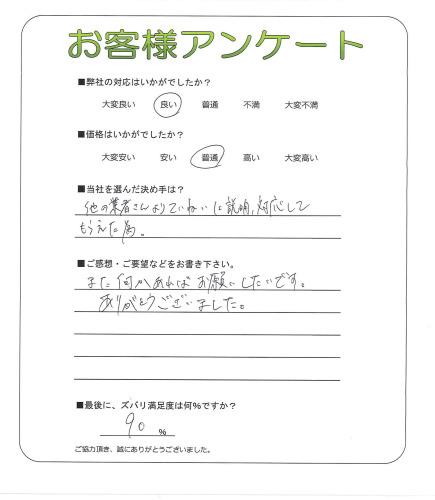 お客様アンケート
■弊社の対応はいかがでしたか？
大変良い　良い　普通　不満　大変不満
■価格はいかがでしたか？
大変安い　安い　普通　高い　大変高い
■当社を選んだ決め手は？
他の業者さんよりていねいに説明,対応して
もらえた為。
■ご感想・ご要望などをお書き下さい。
また何かあればお願いしたいです。
ありがとうございました。
■最後に、ズバリ満足度は何%ですか？
90 %
ご協力頂き、誠にありがとうございました。